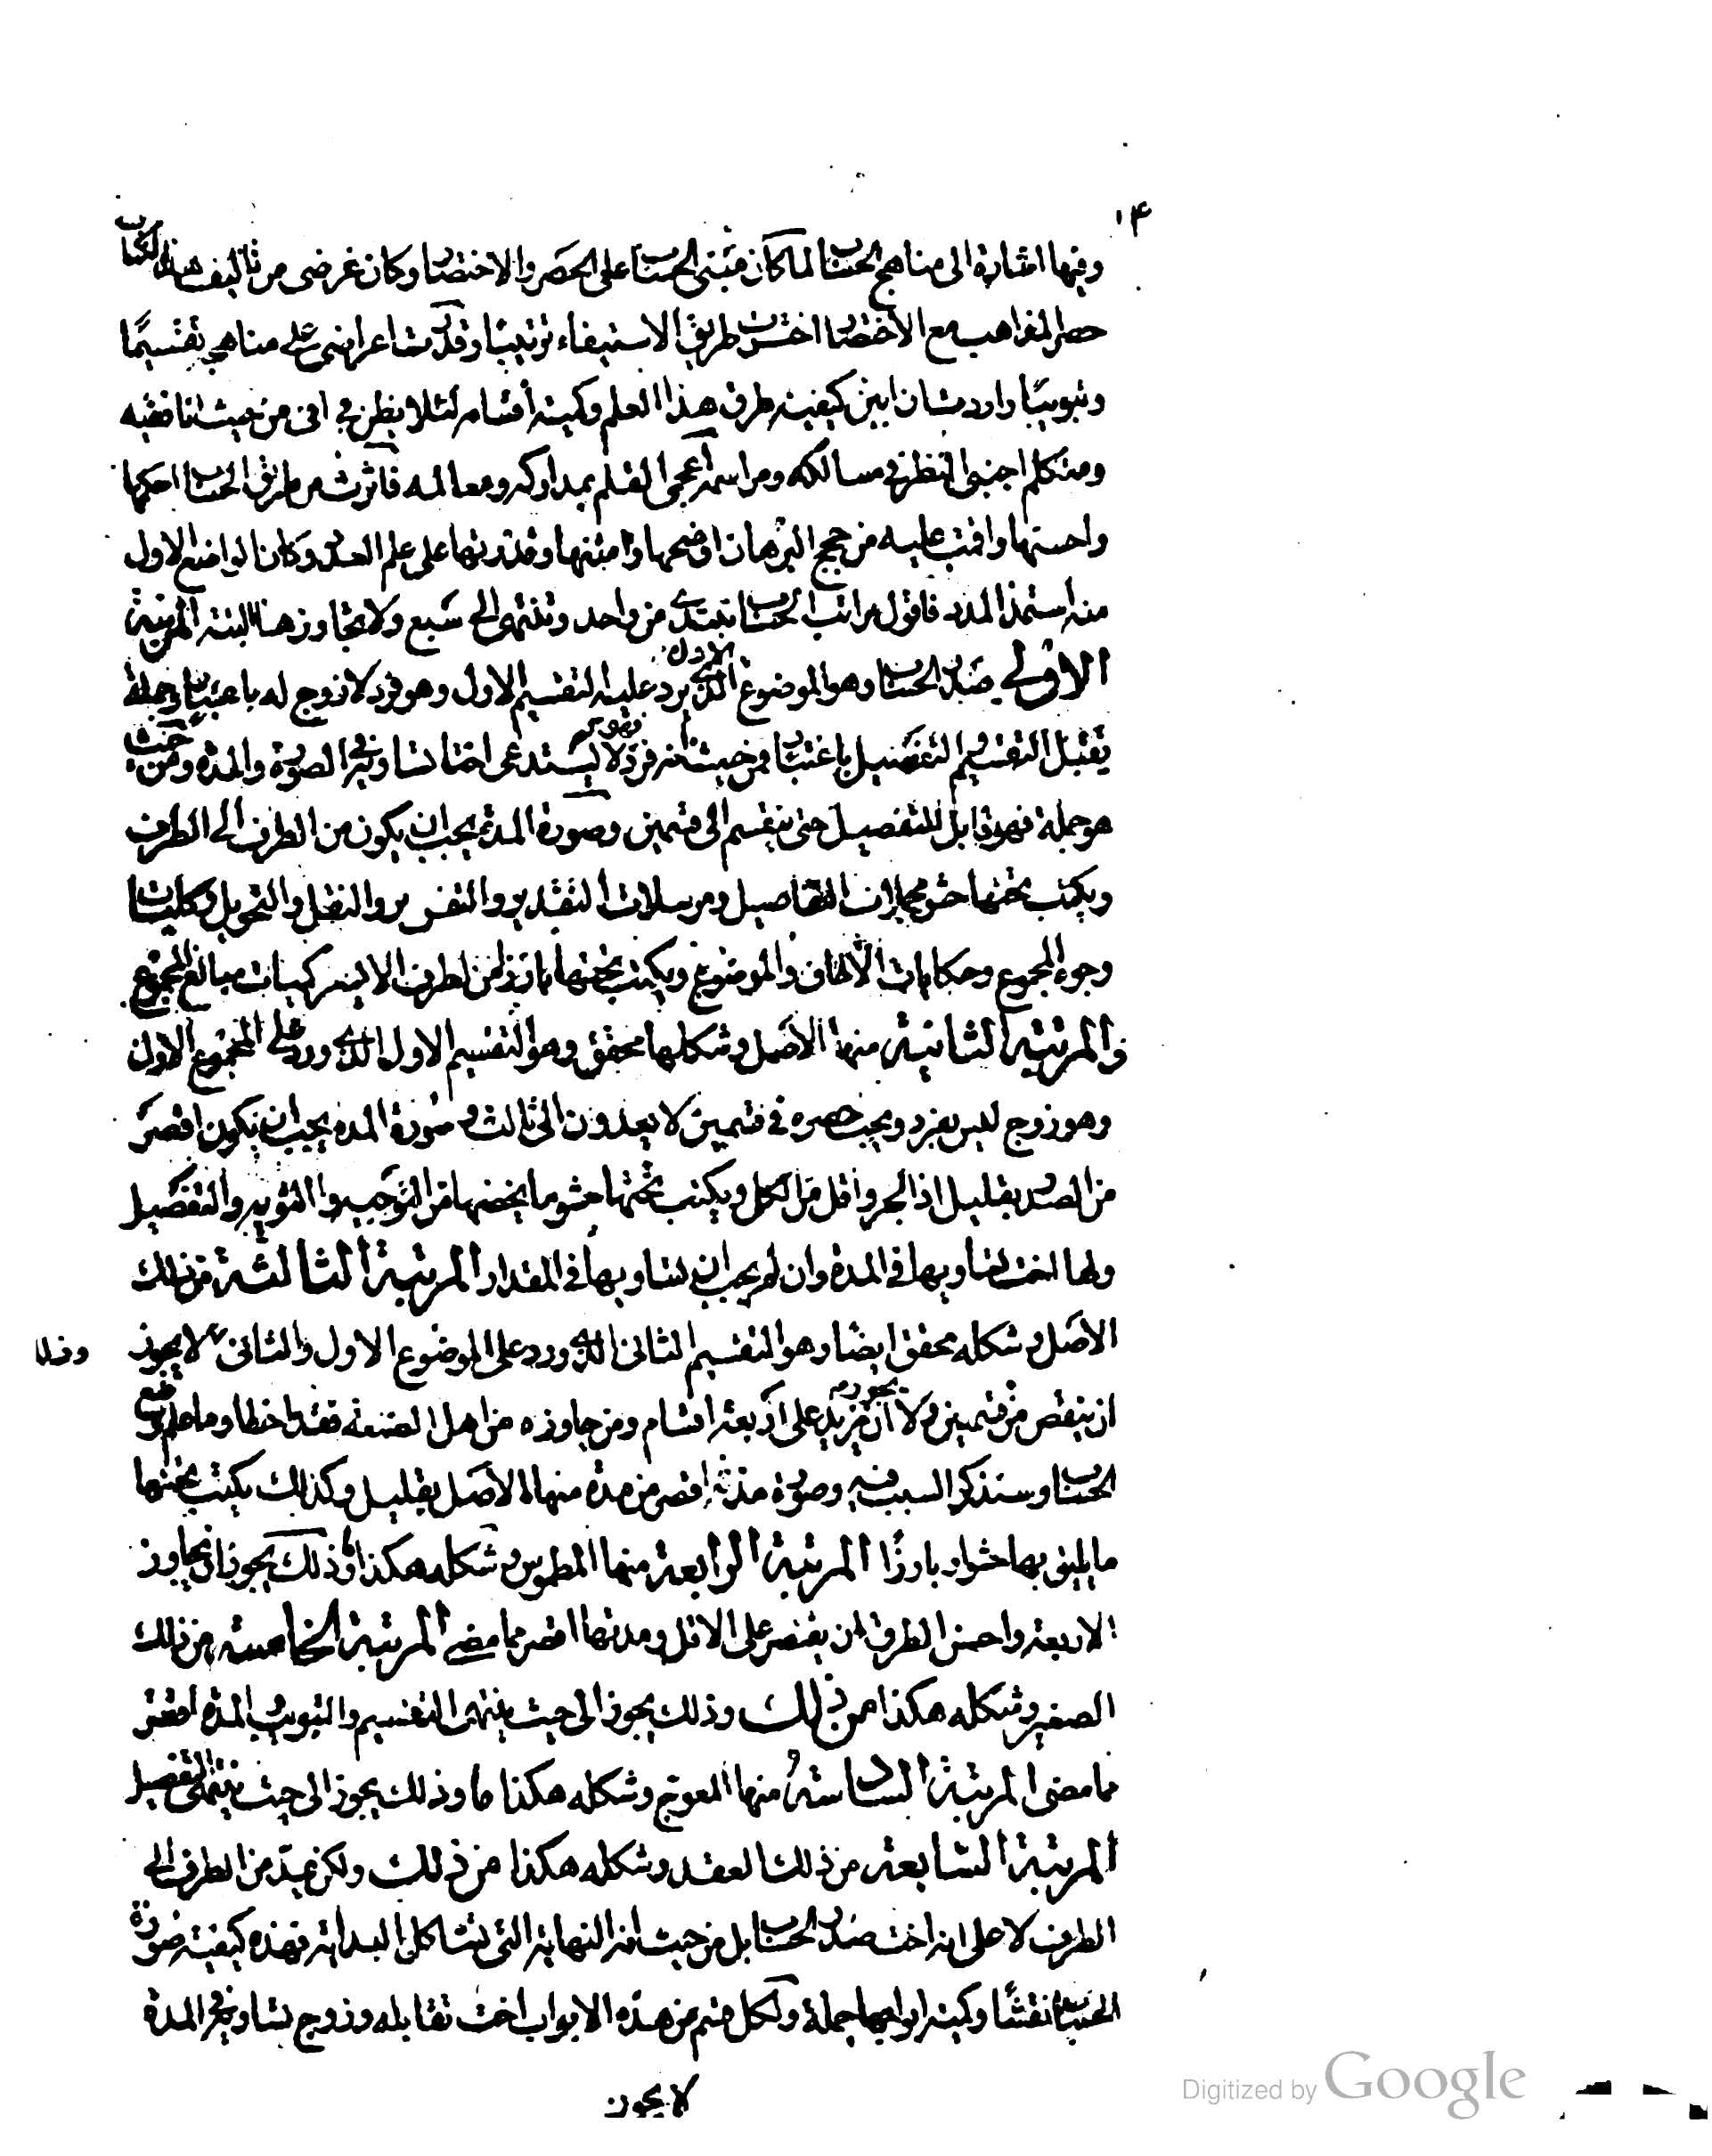 ١٤
وفيها اشارة الى مناهج الحساب لما كان مبنى الحساب على الحصر والاختصار وكان غرضى من تاليف هذا الكتاب
حصر المذاهب مع الاختصار اخترت طريق الاستيفاء ترتيبا وقدرت اغراضى على مناهجه تقسيما
وتبويبا واردت ان ابين كيفية طرق هذا العلم وكمية اقسامه لئلا يظن بى انى من حيث انا فقيه
ومتكلم اجنبى النظر فى مسالكه ومراسمه اعجمى القلم بمداركه ومعالمه فآثرت من طرق الحساب احكمها
واحسنها واقمت عليه من حجج البرهان اوضحها وامتنها وقدرتها على علم العدد وكان الواضع الاول
منه استمد المدد فاقول مراتب الحساب تبتدى من واحد وتنتهى الى سبع ولا تجاوزها البتة المرتبة
الاولى صدر الحساب وهو الموضوع الاول الذى يرد عليه التقسيم الاول وهو فرد لا زوج له باعتبار وجملة
يقبل التقسيم والتفصيل باعتبار فمن حيث انه فرد فهو لا يستدعى اختا تساويه فى الصورة والمدة ومن حيث
هو جملة فهو قابل للتفصيل حتى ينقسم الى قسمين وصورة المدة يجب ان يكون من الطرف الى الطرف
ويكتب تحتها حشو مجملات التفاصيل ومرسلات التقدير والتقرير والنقل والتحويل وكليات
وجوه المجموع وحكايات الالحاق والموضوع ويكتب تحتها بارزا من الطرف الايسر كميات مبالغ المجموع
والمرتبة الثانية منها الاصل وشكلها محقق وهو التقسيم الاول الذى ورد على المجموع الاول
وهو زوج ليس بفرد ويجب حصره فى قسمين لا يعدوان الى ثالث وصورة المدة يجب ان يكون اقصر
من الصدر بقليل اذ الجزو اقل من الكل ويكتب تحتها حشو ما يخصها من التوجيه والتنويع والتفصيل
ولها اخت تساويها فى المدة وان لم يجب ان تساويها فى المقدار المرتبة الثالثة من ذلك
الاصل وشكله محقق ايضا وهو التقسيم الثانى الذى ورد على الموضوع الاول والثانى وذلك لا يجوز
ان ينقص من قسمين ولا يجوز ان يزيد على اربعة اقسام ومن جاوزه من اهل الصنعة فقد اخطا وما علم وضع
الحساب وسنذكر السبب فيه وصورة مدته اقصر من مدة منها الاصل بقليل وكذلك يكتب تحتها
ما يليق بها حشوا وبارزا المرتبة الرابعة منها المطموس وشكله هكذا وذلك يجوز ان يجاوز
الاربعة واحسن الطرق ان يقتصر على الاقل ومدتها اقصر مما مضى المرتبة الخامسة من ذلك
الصغير وشكله هكذا من ذلك وذلك يجوز الى حيث ينتهى التقسيم والتبويب والمدة اقصر
مما مضى المرتبة السادسة منها المعوج وشكله هكذا ما وذلك يجوز الى حيث ينتهى التفصيل
المرتبة السابعة من ذلك العقد وشكله هكذا من ذلك ولكن يمد من الطرف الى
الطرف لا على انه اخت صدر الحساب بل من حيث انه النهاية التى تشاكل البداية فهذه كيفية صورة
الحساب نقشا وكمية ابوابها جملة ولكل قسم من هذه الابواب اخت تقابله وزوج يساويه فى المدة
لا يجوز
Digitized by Google